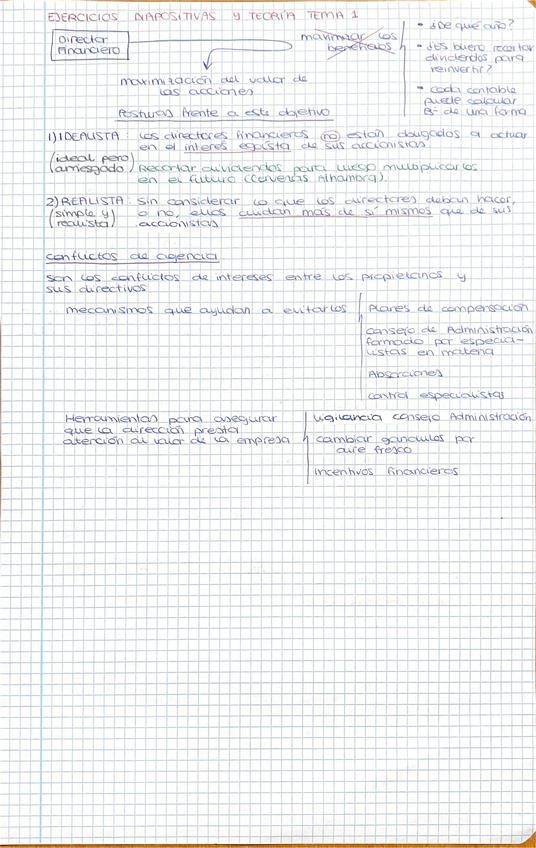 EJERCICIOS DIAPOSITIVAS Y TEORÍA TEMA 1
Director
Financiero
maximizar los
beneficios
• ¿De qué año?
• ¿Es bueno recortar
dividendos para
reinvertir?
• cada contable
puede calcular
de una forma
maximización del valor de
las acciones
Posturas frente a este objetivo
1) IDEALISTA: los directores financieros no están obligados a actuar
en el interés egoísta de sus accionistas.
(ideal pero
arriesgado)
Recortar dividendos para luego multiplicarlos
en el futuro (Cervezas Alhambra).
2) REALISTA: sin considerar lo que los directores deban hacer,
(simple y
realista)
o no, ellos cuidan más de sí mismos que de sus
accionistas
conflictos de agencia
son los conflictos de intereses entre los propietarios y
sus directivos
mecanismos que ayudan a evitarlos
Planes de compensación
consejo de Administración
formado por especia-
listas en materia
Absorciones
control especialistas
Herramientas para asegurar
que la dirección presta
atención al valor de la empresa
vigilancia consejo Administración
cambiar gandules por
aire fresco
incentivos financieros